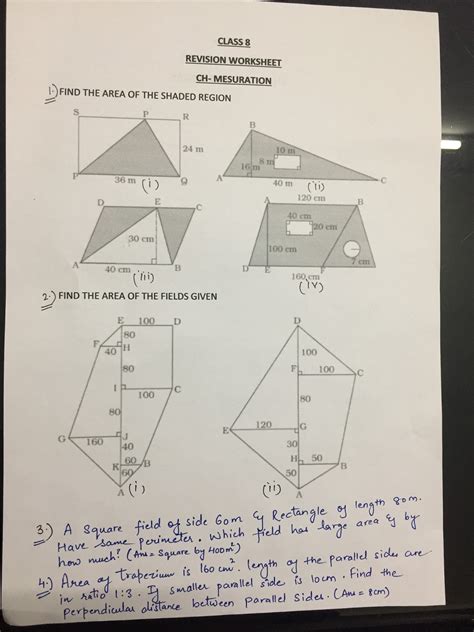 CLASS 8
REVISION WORKSHEET
CH- MESURATION
1.) FIND THE AREA OF THE SHADED REGION
S P R
24 m
P 36 m Q
(i)
B
10 m
8 m
16 m
A 40 m C
(ii)
D E C
30 cm
A 40 cm B
(iii)
120 cm
A B
40 cm
20 cm
100 cm
7 cm
D E F
160 cm
(iv)
2.) FIND THE AREA OF THE FIELDS GIVEN
E 100 D
80
F 40 H
80
I 100 C
80
G 160 J
40
K 60 B
60
A
(i)
D
100
F 100 C
80
E 120 G
30
H 50 B
50
A
(ii)
3.) A square field of side 60m & Rectangle of length 80m.
Have same perimeter. Which field has large area & by
how much? (Ans = Square by 400m²)
4.) Area of trapezium is 160 cm². length of the parallel sides are
in ratio 1:3. If smaller parallel side is 10cm. Find the
perpendicular distance between Parallel Sides. (Ans = 8cm)